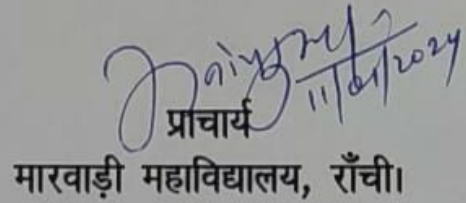 11/01/2024
प्राचार्य
मारवाड़ी महाविद्यालय, राँची।